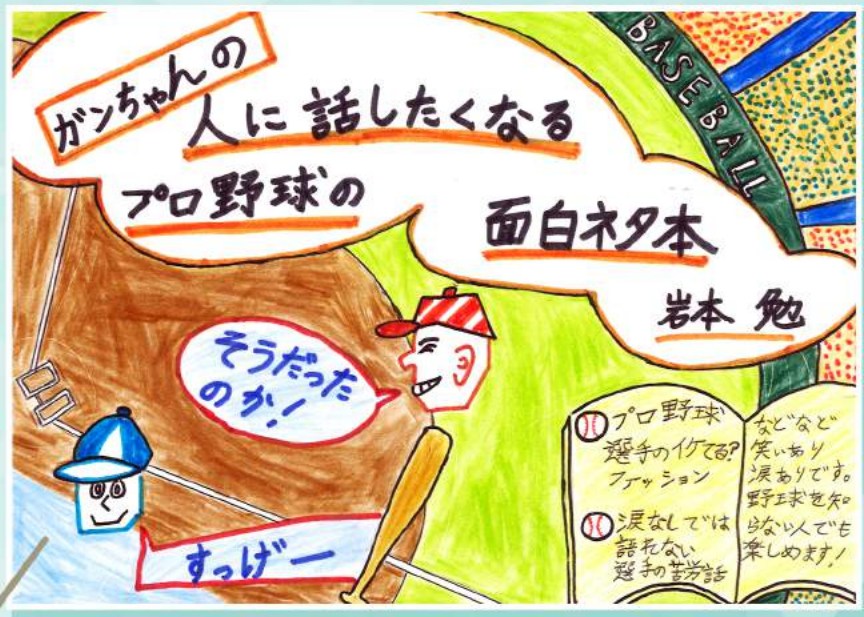 BASEBALL
ガンちゃんの
人に話したくなる
プロ野球の
面白ネタ本
岩本 勉
そうだった
のか!
すっげー
プロ野球
選手のイケてる?
ファッション
涙なしでは
語れない
選手の苦労話
などなど
笑いあり
涙ありです。
野球を知
らない人でも
楽しめます!